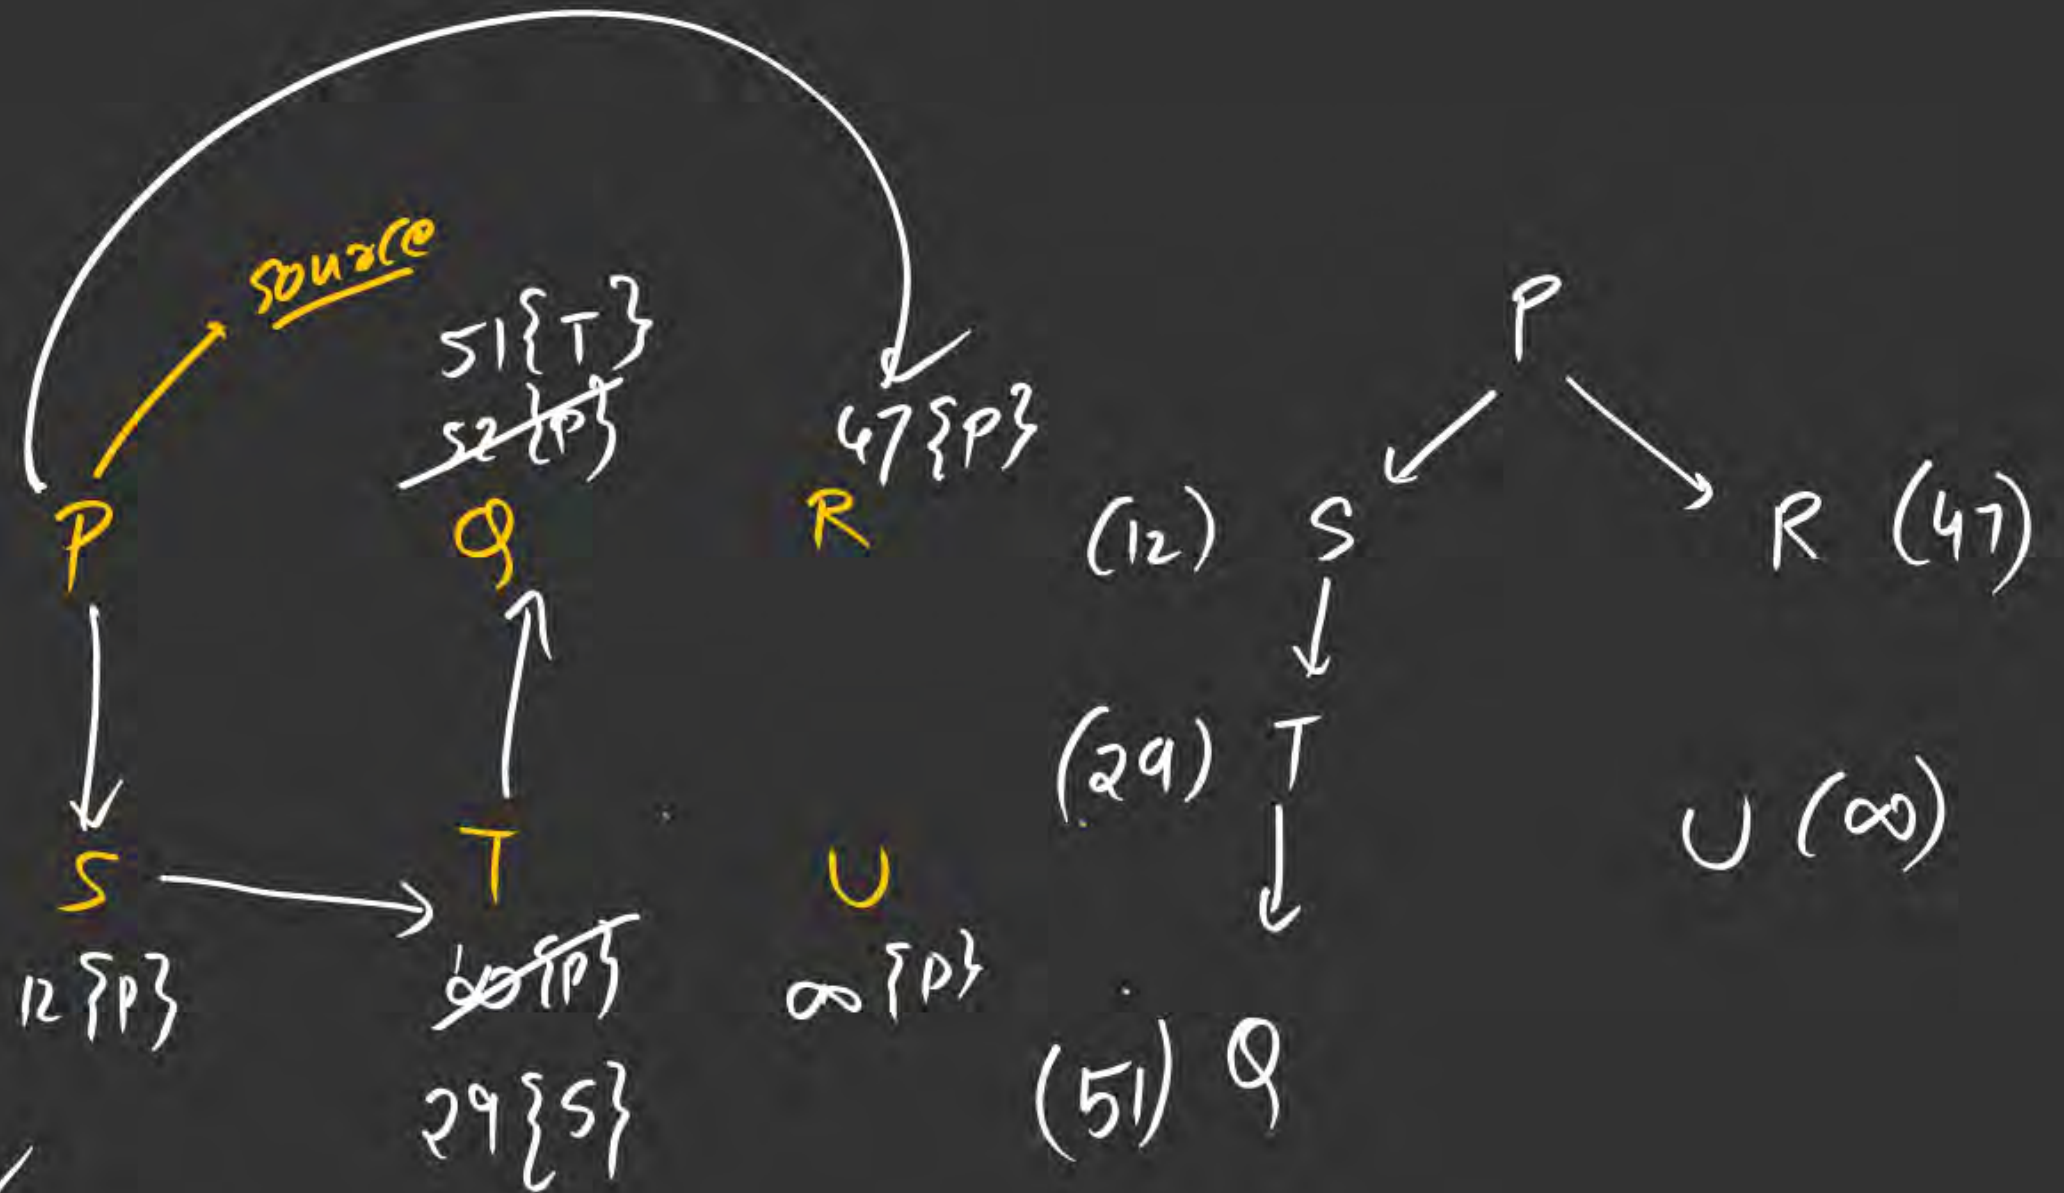 source
51{T}
52{P}
47{P}
P
Q
R
S
T
U
12{P}
∞{P}
29{S}
P
(12) S
R (47)
(29) T
U (∞)
(51) Q